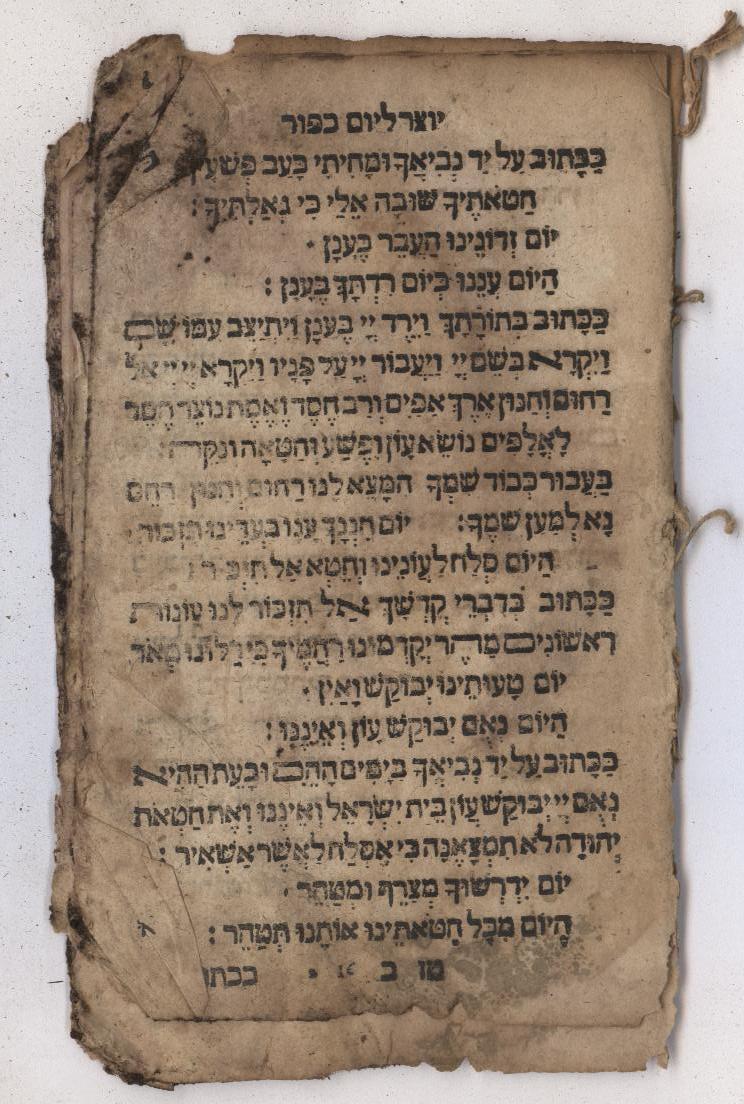 יוצר ליום כפור
כַּכָּתוּב עַל יַד נְבִיאֶךָ וּמָחִיתִי כָּעָב פְּשָׁעֶיךָ
חַטֹאתֶיךָ שׁוּבָה אֵלַי כִּי גְאַלְתִּיךָ :
יוֹם זְדוֹנֵינוּ הַעֲבֵר כֶּעָנָן .
הַיוֹם עֲנֵנוּ כְּיוֹם רִדְתְּךָ בֶּעָנָן :
כַּכָּתוּב בְּתוֹרָתֶךָ וַיֵרֶד יְיָ בֶּעָנָן וַיִתְיַצֵב עִמוֹ שָׁם
וַיִקְרָא בְּשֵׁם יְיָ וַיַעֲבוֹר יְיָ עַל פָּנָיו וַיִקְרָא יְיָ יְיָ אֵל
רַחוּם וְחַנּוּן אֶרֶךְ אַפַּיִם וְרַב חֶסֶד וֶאֱמֶת נוֹצֵר חֶסֶד
לָאֲלָפִים נוֹשֵׂא עָוֹן וָפֶשַׁע וְחַטָאָה וְנַקֵה :
בַּעֲבוּר כְּבוֹד שִׁמְךָ הִמָצֵא לָנוּ רַחוּם וְחַנּוּן רַחֵם
נָא לְמַעַן שְׁמֶךָ : יוֹם חֲנָנְךָ עָנוּ בַּעֲדֵינוּ תִזְכּוֹר .
הַיוֹם סְלַח לַעֲוֹנֵינוּ וְחֵטְא אַל תִּזְכּוֹר :
כַּכָּתוּב בְּדִבְרֵי קָדְשֶׁךָ אַל תִּזְכּוֹר לָנוּ עֲוֹנוֹת
רִאשׁוֹנִים מַהֵר יְקַדְמוּנוּ רַחֲמֶיךָ כִּי דַלוֹנוּ מְאֹד
יוֹם טָעוּתֵינוּ יְבוּקַשׁ וָאַיִן .
הַיוֹם נְאֻם יְבוּקַשׁ עָוֹן וְאֵינֶנּוּ :
כַּכָּתוּב עַל יַד נְבִיאֶךָ בַּיָמִים הָהֵם וּבָעֵת הַהִיא
נְאֻם יְיָ יְבוּקַשׁ עֲוֹן בֵּית יִשְׂרָאֵל וְאֵינֶנּוּ וְאֶת חַטֹאת
יְהוּדָה לֹא תִמְצָאֶנָה כִּי אֶסְלַח לַאֲשֶׁר אַשְׁאִיר :
יוֹם יִדְרְשׁוּךָ מְצָרֵף וּמְטַהֵר .
הַיוֹם מִכָּל חַטֹאתֵינוּ אוֹתָנוּ תְּטַהֵר :
טו ב 16 ככתו